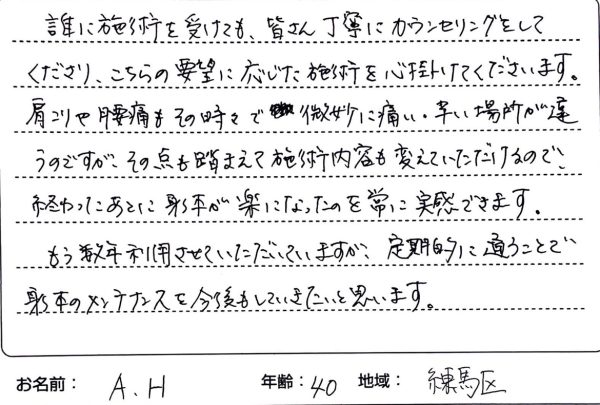 誰に施術を受けても、皆さん丁寧にカウンセリングをして
くださり、こちらの要望に応じた施術を心掛けてくださいます。
肩こりや腰痛もその時々で微妙に痛い・辛い場所が違
うのですが、その点も踏まえて施術内容も変えていただけるので、
終わったあとに身体が楽になったのを常に実感できます。
もう数年利用させていただいていますが、定期的に通うことで
身体のメンテナンスを今後もしていきたいと思います。
お名前: A.H 年齢: 40 地域: 練馬区